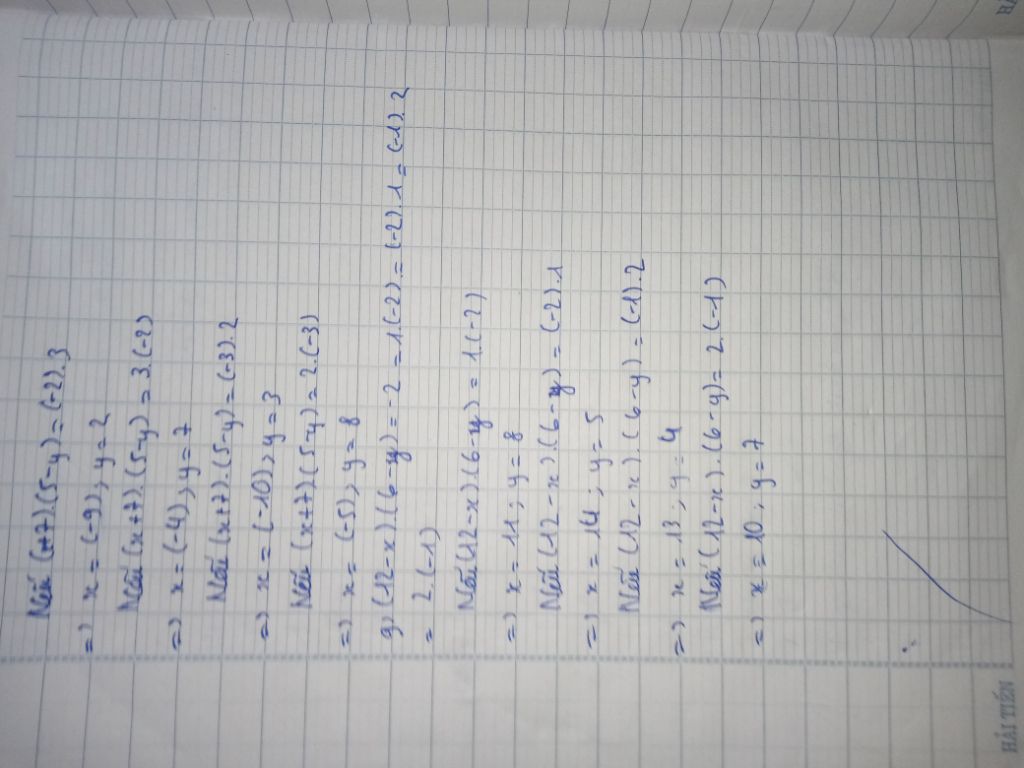 Nếu (+7).(5-y)=(-2).3
=> x=(-9); y=2
Nếu (x+7).(5-y)=3.(-2)
=> x=(-4); y=7
Nếu (x+7).(5-y)=(-3).2
=> x=(-10); y=3
Nếu (x+7)(5-y)=2.(-3)
=> x=(-5); y=8
g) (12-x)(6-y)=-2=1.(-2)=(-2).1=(-1).2
= 2.(-1)
Nếu (12-x)(6-y)=1.(-2)
=> x=11; y=8
Nếu (12-x).(6-y)=(-2).1
=> x=14; y=5
Nếu (12-x).(6-y)=(-1).2
=> x=13; y=4
Nếu (12-x).(6-y)=2.(-1)
=> x=10; y=7
HẢI TIẾN